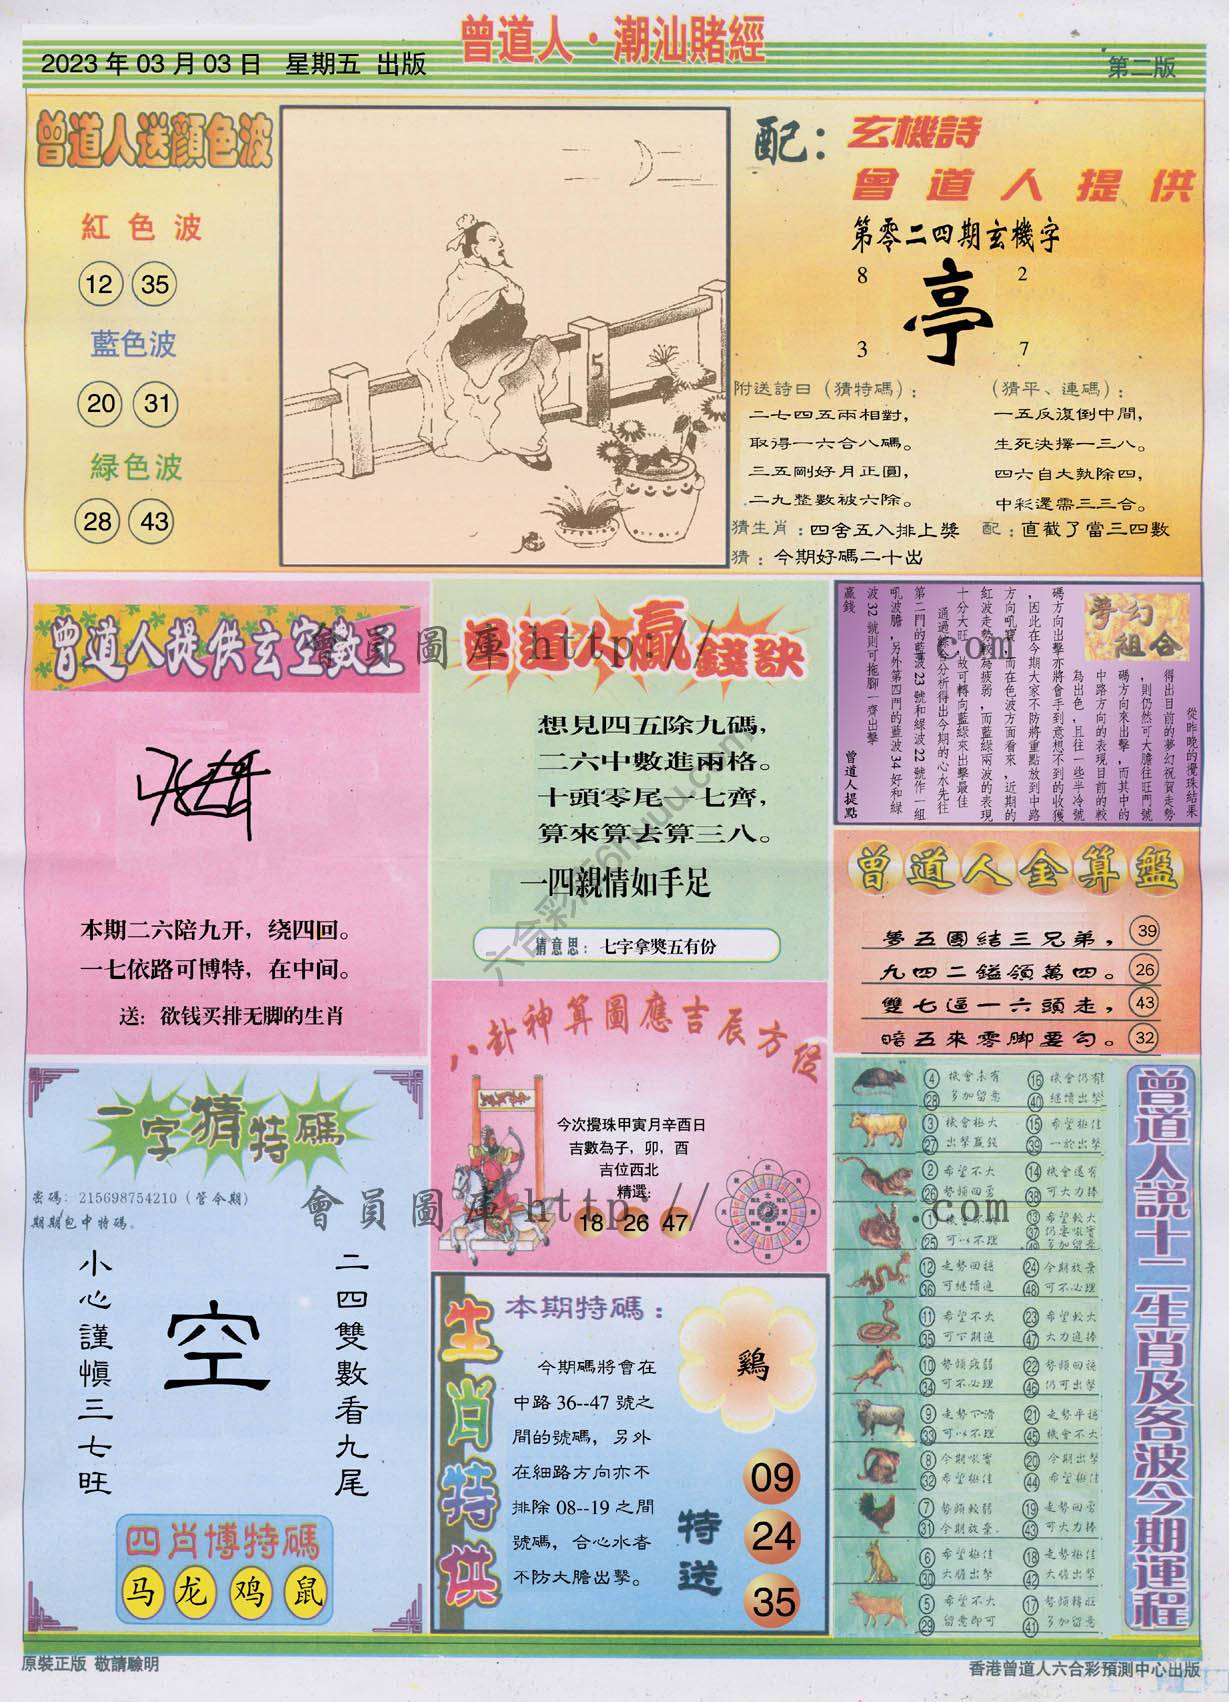 曾道人·潮汕賭經
2023年03月03日 星期五 出版
第二版
曾道人送顔色波
紅色波
12 35
藍色波
20 31
緑色波
28 43
5
配：玄機詩
曾道人提供
第零二四期玄機字
8 2
亭
3 7
附送詩曰（猜特碼）：
二七四五兩相對，
取得一六合八碼。
三五剛好月正圓，
二九整數被六除。
（猜平、連碼）：
一五反復倒中間，
生死決擇一三八。
四六自大執除四，
中彩還需三三合。
猜生肖：四舍五入排上獎
配：直截了當三四數
猜：今期好碼二十出
曾道人提供玄空數王
本期二六陪九开，绕四回。
一七依路可博特，在中间。
送：欲钱买排无脚的生肖
曾道人贏錢訣
想見四五除九碼，
二六中數進兩格。
十頭零尾一七齊，
算來算去算三八。
一四親情如手足
猜意思：七字拿獎五有份
夢幻組合
從昨晚的攪珠結果
得出目前的夢幻祝賀走勢
，則仍然可大膽往旺門號
碼方向來出擊，而其中的
中路方向的表現目前的較
為出色，且往一些半冷號
碼方向出擊亦將會手到意想不到的收獲
，因此在今期大家不防將重點放到中路
方向吼寶，而在色波方面看來，近期的
紅波走勢較為疲弱，而藍綠兩波的表現
十分大旺，故可轉向藍綠來出擊最佳
通過綜合分析得出今期的心水先往
第二門的藍波23號和綠波22號作一組
吼波膽，另外第四門的藍波34好和綠
波32號則可拖腳一齊出擊
贏錢
曾道人提點
曾道人金算盤
夢五團結三兄弟， 39
九四二鎰領萬四。 26
雙七逼一六頭走， 43
暗五來零脚要勾。 32
一字猜特碼
密碼：215698754210（管今期）
期期包中特碼。
小心謹慎三七旺
空
二四雙數看九尾
四肖博特碼
马 龙 鸡 鼠
八卦神算圖應吉辰方位
今次攪珠甲寅月辛酉日
吉數為子，卯，酉
吉位西北
精選：
18 26 47
生肖特供
本期特碼：
今期碼將會在
中路36--47號之
間的號碼，另外
在細路方向亦不
排除08--19之間
號碼，合心水者
不防大膽出擊。
鷄
特送
09
24
35
曾道人説十二生肖及各波今期運程
4 28 機會未有 多加留意
16 40 機會仍有 繼續出擊
3 27 機會極大 出擊贏錢
15 39 希望極佳 一於出擊
2 26 希望不大 勢頭回勇
14 38 機會還有 可大力捧
1 25 可以不理
13 37 49 希望較大 仍要吼實 多加留意
12 36 走勢回穩 可繼續追
24 48 今期放棄 可不必理
11 35 希望不大 可下期追
23 47 希望較大 大力追捧
10 34 勢頭疲弱 可不必理
22 46 勢頭回穩 仍可出擊
9 33 走勢下滑 可以不理
21 45 走勢平穩 機會不大
8 32 今期吼實 希望極佳
20 44 今期出擊 希望極佳
7 31 勢頭較弱 今期放棄
19 43 走勢回勇 可大力捧
6 30 希望極佳 大膽出擊
18 42 走勢極佳 大膽出擊
5 29 希望不大 留意即可
17 41 勢頭轉旺 多加留意
會員圖庫 http:// .com
會員圖庫 http:// .com
原裝正版 敬請驗明
香港曾道人六合彩預測中心出版